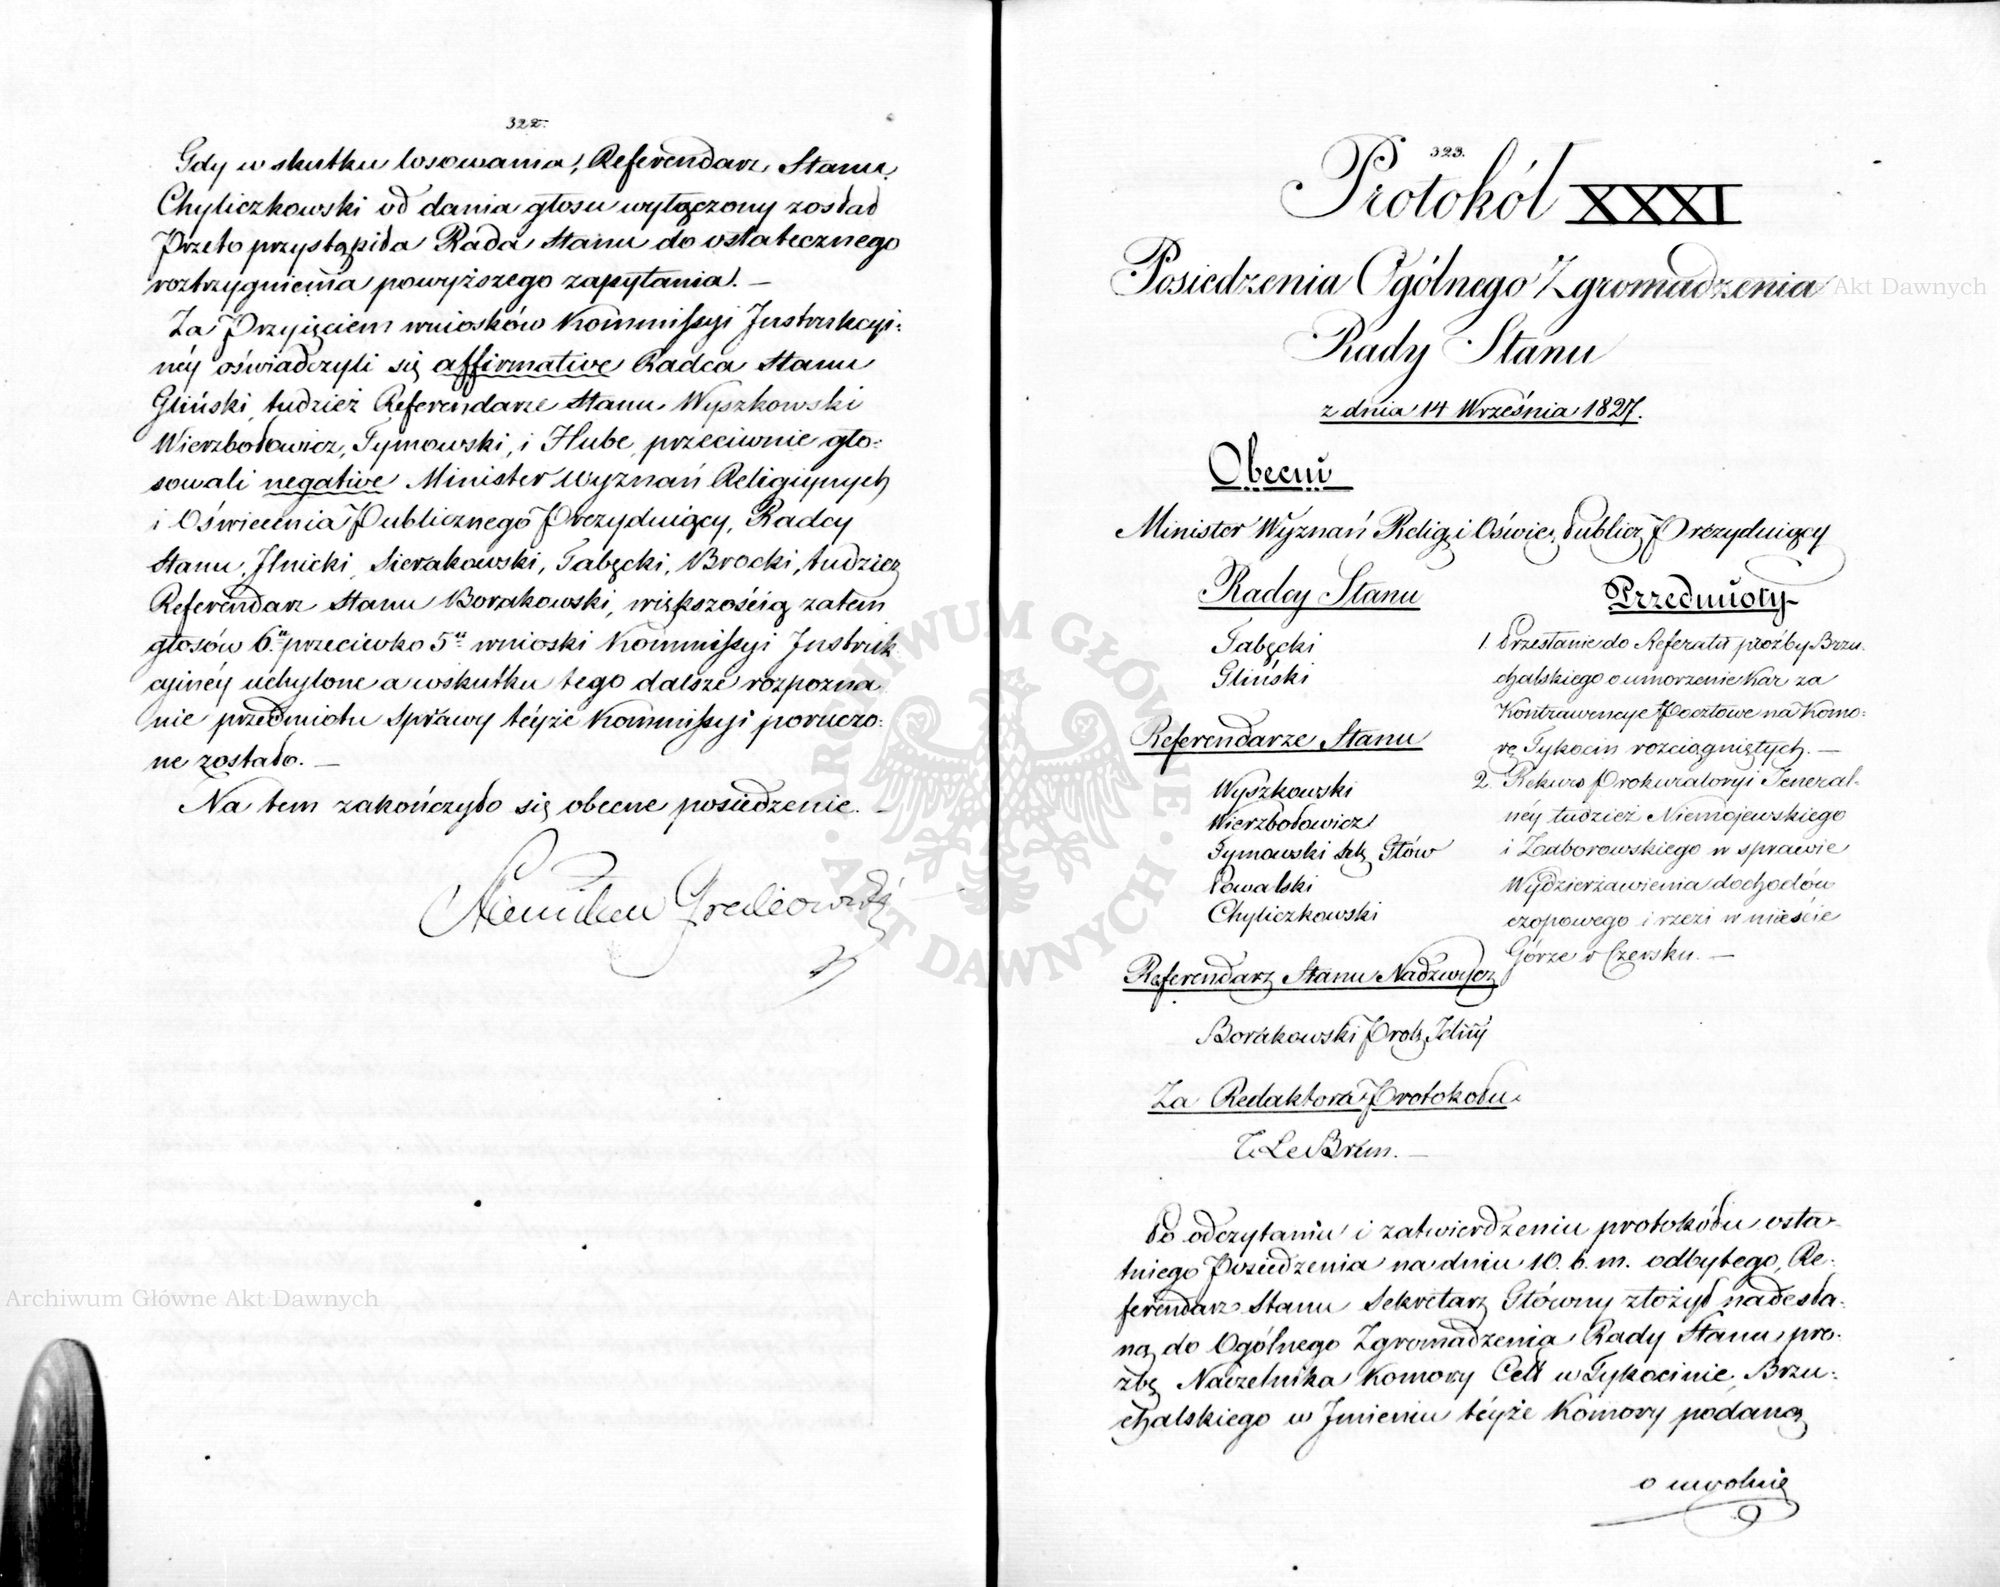 322.
Gdy w skutku losowania, Referendarz Stanu
Chyliczkowski od dania głosu wyłączony został
Przeto przystąpiła Rada Stanu do ostatecznego
roztrzygnienia powyższego zapytania. —
Za Przyięciem wniosków Kommissyi Instrukcyi-
néy oświadczyli się affirmative Radca Stanu
Gliński, tudzież Referendarze Stanu Wyszkowski
Wierzbołowicz, Tymowski, i Hube, przeciwnie gło-
sowali negative Minister Wyznań Religiynych
i Oświecenia Publicznego Prezyduiący, Radcy
Stanu, Ilnicki, Sierakowski, Tabęcki, Brocki, tudzież
Referendarz Stanu Borakowski, większością zatem
głosów 6. przeciwko 5 wnioski Kommissyi Instruk
cyinéy uchylone a wskutku tego dalsze rozpozna
nie przedmiotu sprawy téyże Kommissyi poruczo-
ne zostało. —
Na tem zakończyło się obecne posiedzenie. —
323.
Protokół XXXI
Posiedzenia Ogólnego Zgromadzenia
Rady Stanu
z dnia 14 Września 1827.
Obecni
Minister Wyznań Relig i Oświec Publicz Prezyduiący
Radcy Stanu
Tabęcki
Gliński
Referendarze Stanu
Wyszkowski
Wierzbołowicz
Tymowski Sek Głów
Powalski
Chyliczkowski
Referendarz Stanu Nadzwycz
Borakowski Prok Jelny
Za Redaktora Protokołu
T. Le Brun. —
Przedmioty
1. Przesłanie do Referatu prośby Brzu-
chalskiego o umorzenie kar za
Kontrawencye Pocztowe na Komo-
rę Tykocin rozciągniętych. —
2. Rekurs Prokuratoryi Jeneral-
néy tudzież Niemojewskiego
i Zaborowskiego w sprawie
Wydzierżawienia dochodów
czopowego i rzezi w mieście
Górze v Czersku. —
Po odczytaniu i zatwierdzeniu protokółu osta-
tniego Posiedzenia na dniu 10. b. m. odbytego, Re-
ferendarz Stanu Sekretarz Główny złożył nadesła-
ną do Ogólnego Zgromadzenia Rady Stanu pro-
źbę Naczelnika Komory Celł w Tykocinie, Brzu-
chalskiego w Jmieniu téyże Komory podaną
o uwolnie
Archiwum Główne Akt Dawnych
Akt Dawnych
ARCHIWUM GŁÓWNE
AKT DAWNYCH